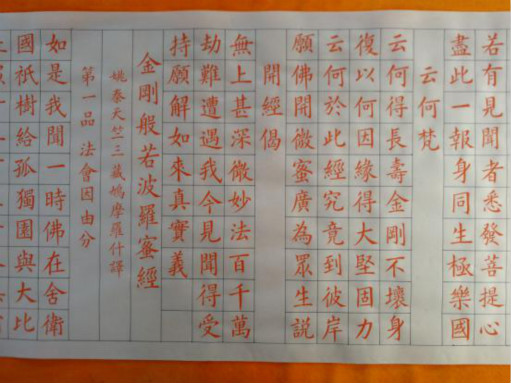 若有見聞者悉發菩提心
盡此一報身同生極樂國
云何梵
云何得長壽金剛不壞身
復以何因緣得大堅固力
云何於此經究竟到彼岸
願佛開微蜜廣為眾生說
開經偈
無上甚深微妙法百千萬
劫難遭遇我今見聞得受
持願解如來真實義
金剛般若波羅蜜經
姚秦天竺三藏鳩摩羅什譯
第一品法會因由分
如是我聞一時佛在舍衛
國祇樹給孤獨園與大比